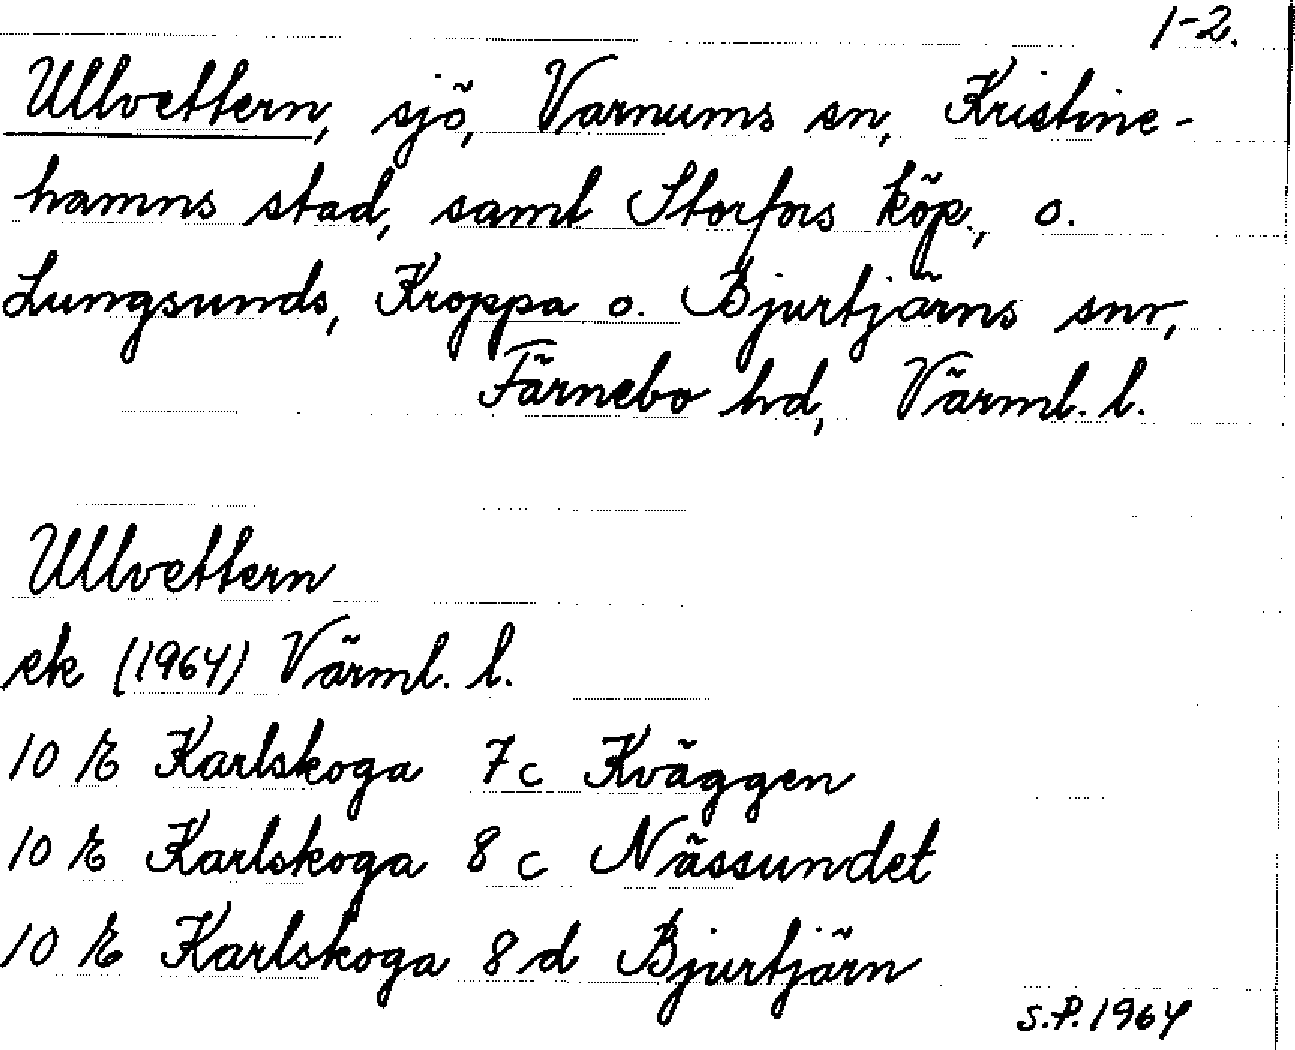 1-2.
Ullvettern, sjö, Varnums sn, Kristine-
hamns stad, samt Storfors köp., o.
Lungsunds, Kroppa o. Bjurtjärns snr,
Färnebo hd, Värml. l.
Ullvettern
ek (1964) Värml. l.
10 E Karlskoga 7c Kväggen
10 E Karlskoga 8 c Nässundet
10 E Karlskoga 8 d Bjurtjärn
S.P. 1964